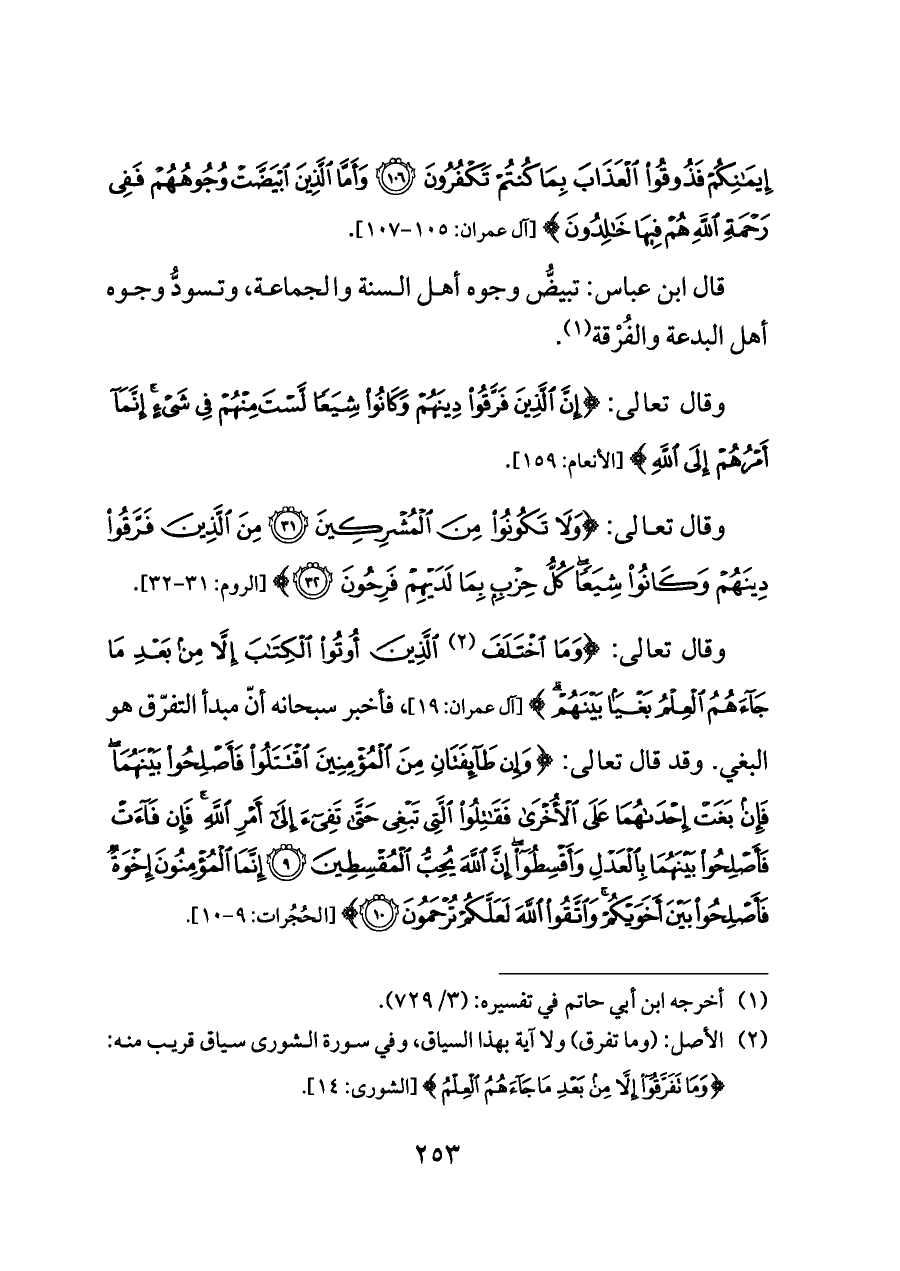 إِيمَٰنِكُمْ فَذُوقُوا۟ ٱلْعَذَابَ بِمَا كُنتُمْ تَكْفُرُونَ ﴿١٠٦﴾ وَأَمَّا ٱلَّذِينَ ٱبْيَضَّتْ وُجُوهُهُمْ فَفِى
رَحْمَةِ ٱللَّهِ هُمْ فِيهَا خَٰلِدُونَ ﴾ [آل عمران: ١٠٥-١٠٧].
قال ابن عباس: تبيضُّ وجوه أهل السنة والجماعة، وتسودُّ وجوه
أهل البدعة والفُرْقة(١).
وقال تعالى: ﴿إِنَّ ٱلَّذِينَ فَرَّقُوا۟ دِينَهُمْ وَكَانُوا۟ شِيَعًا لَّسْتَ مِنْهُمْ فِى شَىْءٍ ۚ إِنَّمَآ
أَمْرُهُمْ إِلَى ٱللَّهِ ﴾ [الأنعام: ١٥٩].
وقال تعالى: ﴿وَلَا تَكُونُوا۟ مِنَ ٱلْمُشْرِكِينَ ﴿٣١﴾ مِنَ ٱلَّذِينَ فَرَّقُوا۟
دِينَهُمْ وَكَانُوا۟ شِيَعًا ۖ كُلُّ حِزْبٍۭ بِمَا لَدَيْهِمْ فَرِحُونَ ﴿٣٢﴾ ﴾ [الروم: ٣١-٣٢].
وقال تعالى: ﴿وَمَا ٱخْتَلَفَ (٢) ٱلَّذِينَ أُوتُوا۟ ٱلْكِتَٰبَ إِلَّا مِنۢ بَعْدِ مَا
جَآءَهُمُ ٱلْعِلْمُ بَغْيًۢا بَيْنَهُمْ ۗ ﴾ [آل عمران: ١٩]، فأخبر سبحانه أنّ مبدأ التفرّق هو
البغي. وقد قال تعالى: ﴿ وَإِن طَآئِفَتَانِ مِنَ ٱلْمُؤْمِنِينَ ٱقْتَتَلُوا۟ فَأَصْلِحُوا۟ بَيْنَهُمَا ۖ
فَإِنۢ بَغَتْ إِحْدَىٰهُمَا عَلَى ٱلْأُخْرَىٰ فَقَٰتِلُوا۟ ٱلَّتِى تَبْغِى حَتَّىٰ تَفِىٓءَ إِلَىٰٓ أَمْرِ ٱللَّهِ ۚ فَإِن فَآءَتْ
فَأَصْلِحُوا۟ بَيْنَهُمَا بِٱلْعَدْلِ وَأَقْسِطُوٓا۟ ۖ إِنَّ ٱللَّهَ يُحِبُّ ٱلْمُقْسِطِينَ ﴿٩﴾ إِنَّمَا ٱلْمُؤْمِنُونَ إِخْوَةٌ
فَأَصْلِحُوا۟ بَيْنَ أَخَوَيْكُمْ ۚ وَٱتَّقُوا۟ ٱللَّهَ لَعَلَّكُمْ تُرْحَمُونَ ﴿١٠﴾ ﴾ [الحُجُرات: ٩-١٠].
(١) أخرجه ابن أبي حاتم في تفسيره: (٣/ ٧٢٩).
(٢) الأصل: (وما تفرق) ولا آية بهذا السياق، وفي سورة الشورى سياق قريب منه:
﴿ وَمَا تَفَرَّقُوٓا۟ إِلَّا مِنۢ بَعْدِ مَا جَآءَهُمُ ٱلْعِلْمُ ﴾ [الشورى: ١٤].
٢٥٣